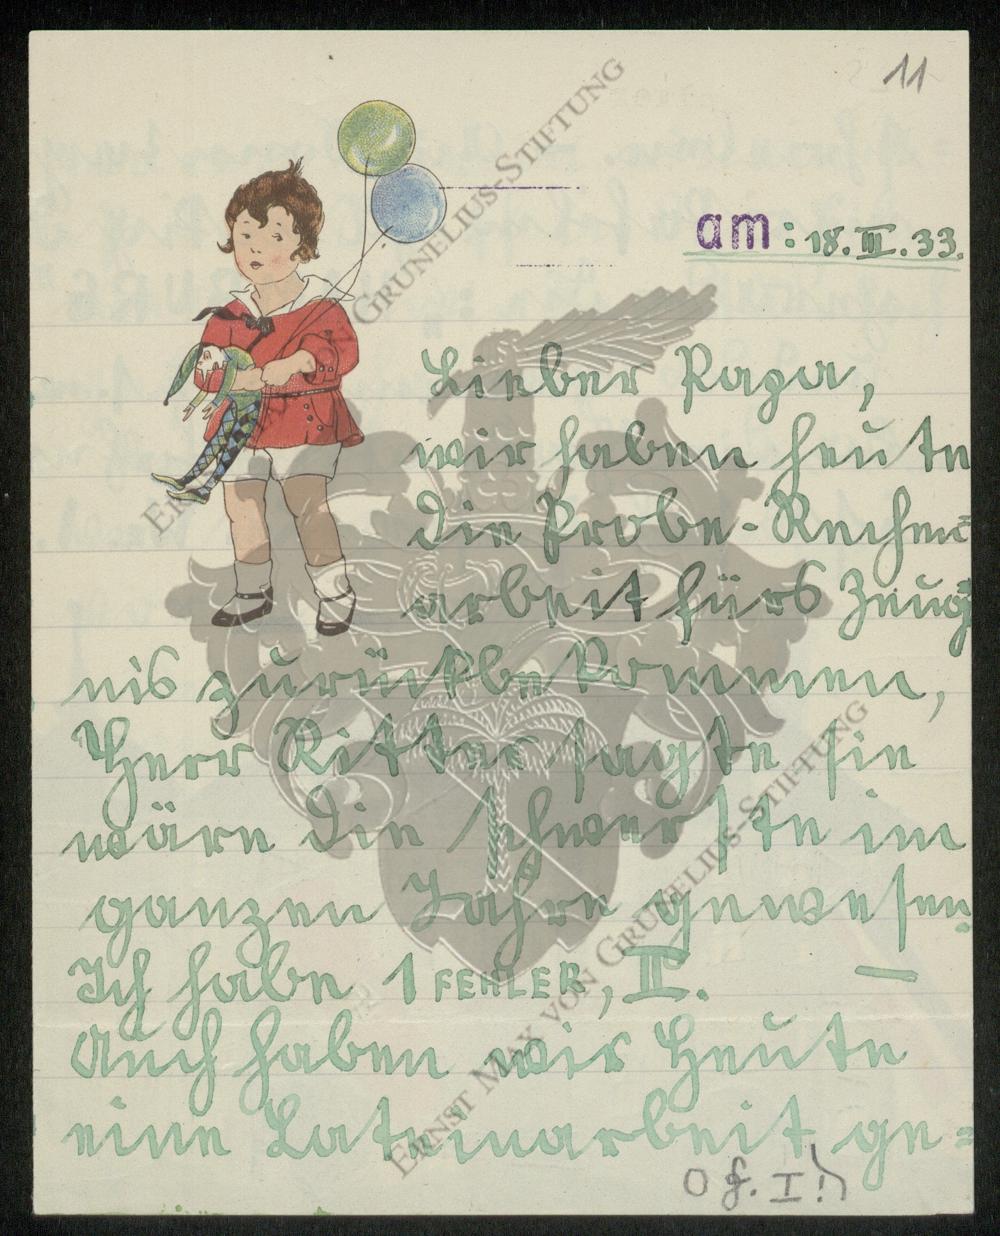 11
am: 18. III. 33.
Lieber Papa,
wir haben heute
die Probe-Rechen-
arbeit fürs Zeug
nis zurückbekommen,
Herr Ritter sagte sie
wäre die schwerste im
ganzen Jahre gewesen.
Ich habe 1 FEHLER, II. —
Auch haben wir Heute
eine Lateinarbeit ge=
0 f. I!
ERNST MAX VON GRUNELIUS-STIFTUNG
ERNST MAX VON GRUNELIUS-STIFTUNG